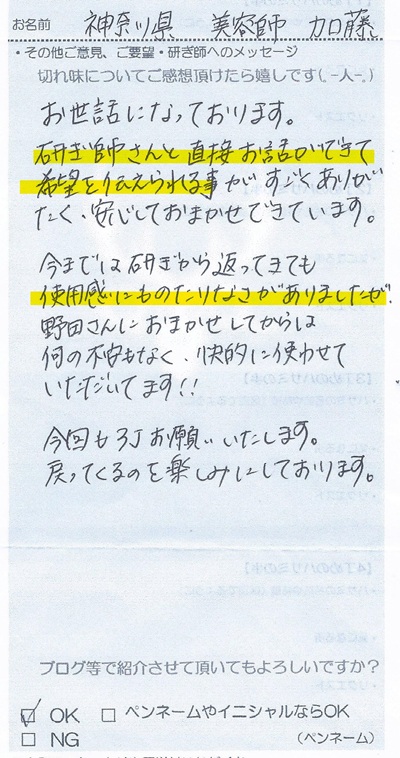 お名前 神奈川県 美容師 加藤
・その他ご意見、ご要望・研ぎ師へのメッセージ
切れ味についてご感想頂けたら嬉しです(_-人-_)
お世話になっております。
研ぎ師さんと直接お話ができて
希望を伝えられる事がすごくありが
たく、安心しておまかせできています。
今までは研ぎから返ってきても
使用感にものたりなさがありましたが、
野田さんにおまかせしてからは
何の不安もなく、快的に使わせて
いただいてます!!
今回も3丁お願いいたします。
戻ってくるのを楽しみにしております。
ブログ等で紹介させて頂いてもよろしいですか?
☑ OK □ ペンネームやイニシャルならOK
□ NG (ペンネーム)